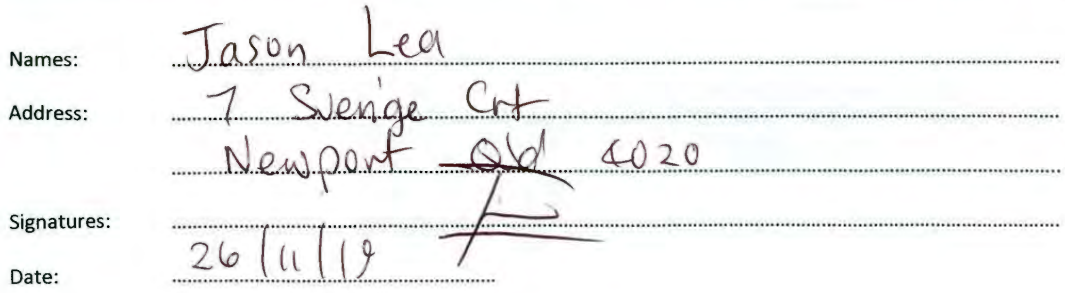 Names: Jason Lea
Address: 7 Sverige Crt
Newport Qld 4020
Signatures:
Date: 26/11/19